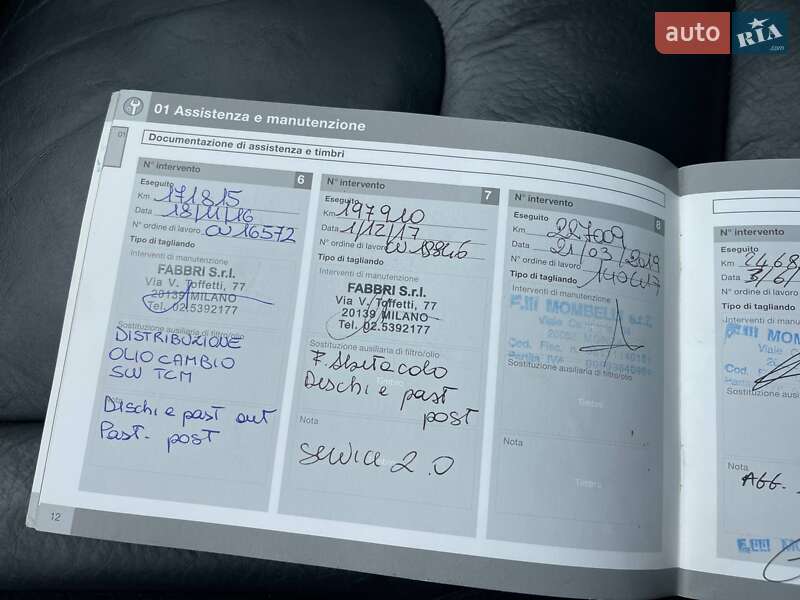 auto RIA .com
01 Assistenza e manutenzione
01
Documentazione di assistenza e timbri
N° intervento 6
Eseguito
Km 171815
Data 18/11/16
N° ordine di lavoro CN16572
Tipo di tagliando
Interventi di manutenzione
FABBRI S.r.l.
Via V. Toffetti, 77
20139 MILANO
Tel. 02.5392177
Sostituzione ausiliaria di filtro/olio
DISTRIBUZIONE
OLIO CAMBIO
SW TCM
Nota
Dischi e past ant
Past. post
12
N° intervento 7
Eseguito
Km 197910
Data 1/12/17
N° ordine di lavoro
Tipo di tagliando
Interventi di manutenzione
FABBRI S.r.l.
Via V. Toffetti, 77
20139 MILANO
Tel. 02.5392177
Sostituzione ausiliaria di filtro/olio
Timbro
F. Abitacolo
Dischi e past
post
Nota
Service 2.0
Timbro
N° intervento 8
Eseguito
Km 227009
Data 21/03/2019
N° ordine di lavoro
Tipo di tagliando
Interventi di manutenzione
F.lli MOMBELLI s.r.l.
Sostituzione ausiliaria di filtro/olio
Timbro
Nota
Timbro
N° intervento
Eseguito
Km 2468
Data
N° ordine di lavoro
Tipo di tagliando
Interventi di manutenzione
F.lli MOM
Viale
Cod.
Sostituzione ausiliaria
Nota
AGG.
F.lli MO